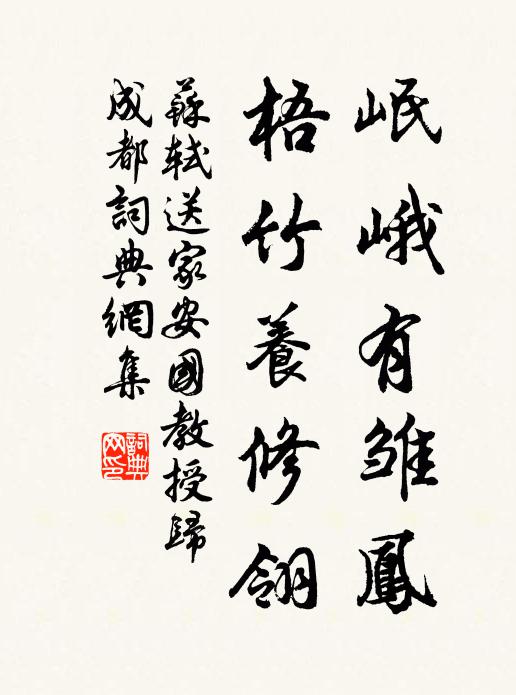 岷峨有雛鳳
梧竹養修翎
蘇軾送家安國教授歸
成都詞典網集
詞典网印